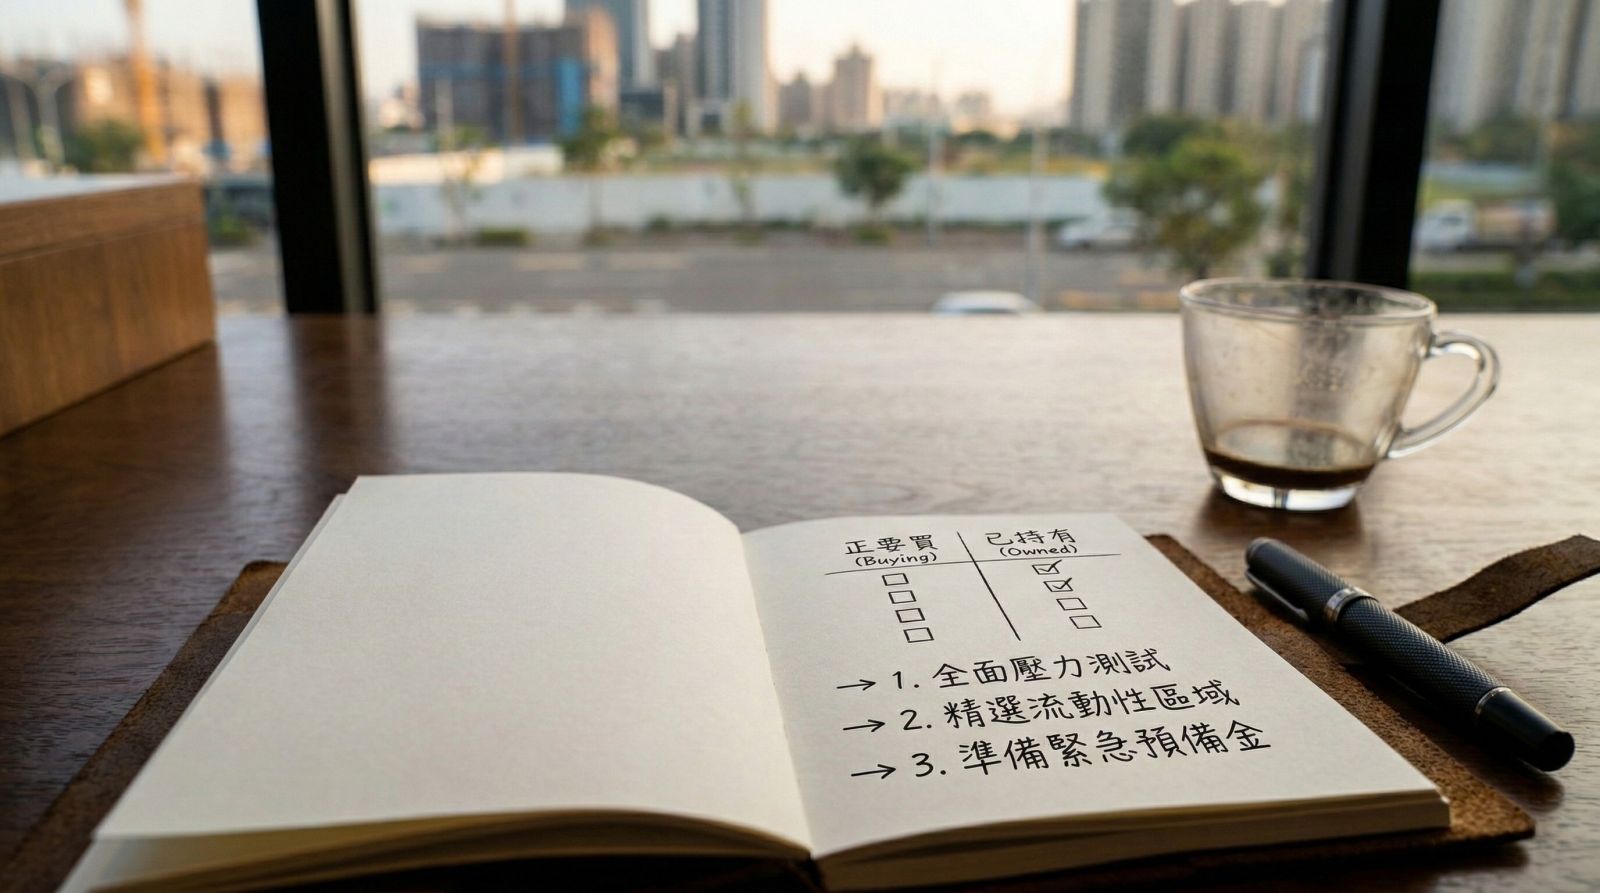 正要買 已持有
(Buying) (Owned)
→ 1. 全面壓力測試
→ 2. 精選流動性區域
→ 3. 準備緊急預備金